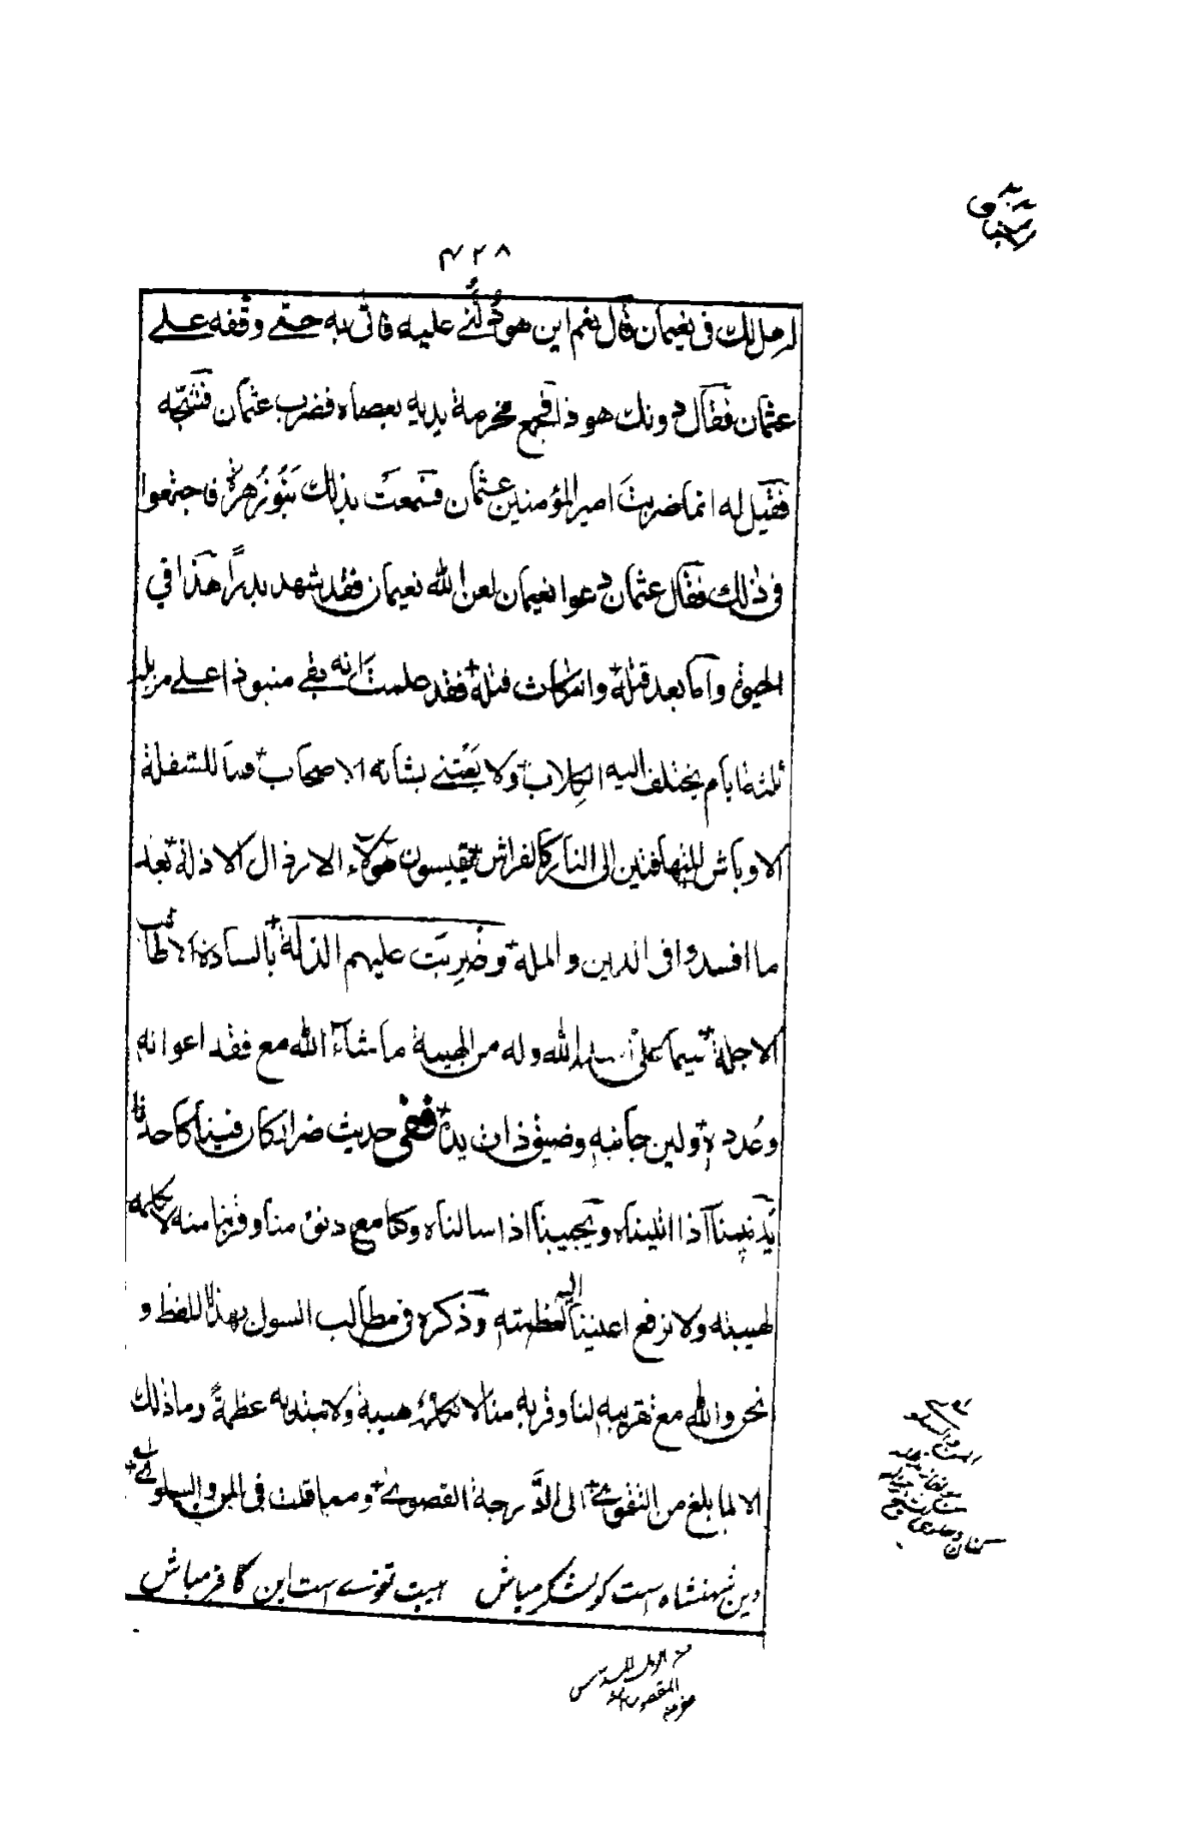 ۴۲۸
لرهل لك فى نعيمان قال نعم اين هو دُلَّنى عليه فاتى به حتى وقفه على
عثمان فقال دونك هو ذا فجمع مخرمة يديه بعصاه فضرب عثمان فشجّه
فقيل له انما ضربت امير المؤمنين عثمان فسمعت بذلك بنو زهرة فاجتمعوا
فى ذلك فقال عثمان دعوا نعيمان لعن الله نعيمان فقد شهد بدراً هذا فى
الحيوة واما بعد قتله وان كان قتله فقد علمت انه بقى منبوذا على مزبلة
ثلثة ايام يختلف اليه الكلاب ولا يَعْتنى بشانه الاصحاب فما للسفلة
الاوباش المتهافتين الى النار كالفراش يقيسون هؤلاء الارذال الاذلة بعد
ما افسدوا فى الدين والملة وضُرِبَت عليهم الذلة بالسادة الاطائب
الاجلة سيما على اسد الله وله من الهيبة ما شاء الله مع فقد اعوانه
وعُدده ولين جانبه وضيق ذات يده ففى حديث ضرار كان فينا كاحدنا
يُدنينا اذا اتيناه ويجيبنا اذا سالناه وكنا مع دنوه منا وقربنا منه لا نكلمه
لهيبته ولا نرفع اعيننا اليه لعظمته وذكره فى مطالب السول بهذا اللفظ و
نحن والله مع تقريبه لنا وقربه منا لا نكلمه هيبة ولا نبتديه عظمةً وما ذلك
الا لما بلغ من التقوى الى الدرجة القصوى ومما قلت فى المن والسلوى
دين شهنشاه است كو لشكر مباش هيبت تقوى است اين كافر مباش